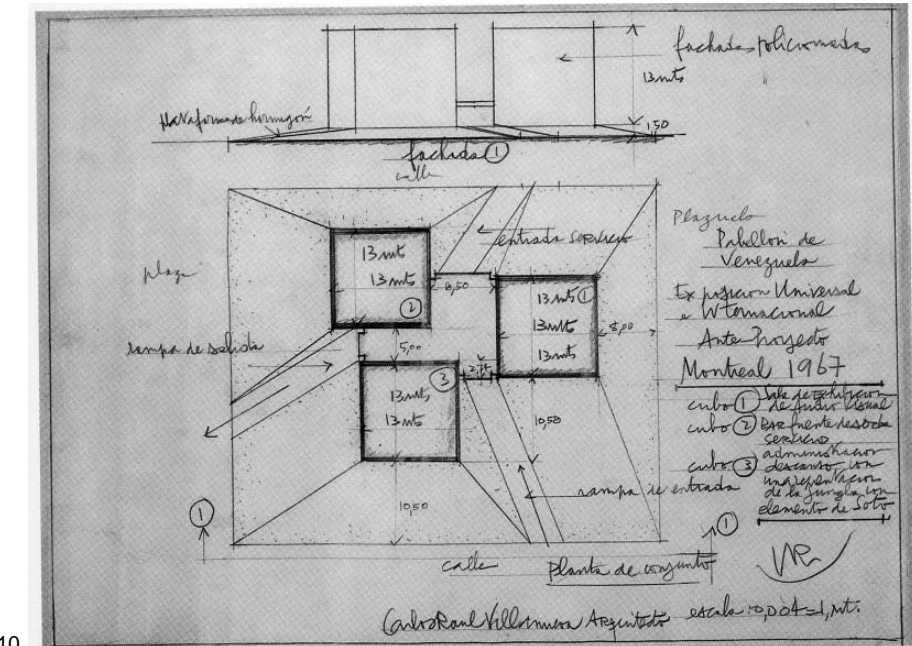 fachadas policromadas
13 mts
1,50
plataforma de hormigón
fachada 1
calle
entrada servicio
plaza
13 mts
13 mts
2
8,50
13 mts 1
13 mts
13 mts
8,00
rampa de salida
5,00
3
13 mts
13 mts
10,50
rampa de entrada
10,50
1
1
calle
Planta de conjunto
Plazuela
Pabellon de
Venezuela
Exposicion Universal
e Internacional
Ante-Proyecto
Montreal 1967
cubo 1 Sala de exhibicion
de Audio visual
cubo 2 BAR fuente de soda
servicio
administracion
cubo 3 descanso con
una
de la jungla con
elemento de Soto
VR
Carlos Raul Villanueva Arquitecto escala: 0,004=1, mt.
10